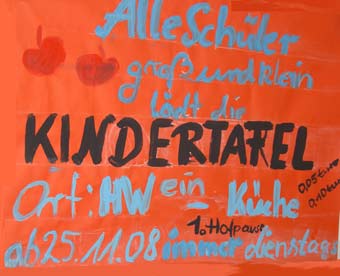 Alle Schüler
groß und klein
lädt die
KINDERTAFEL
Ort: HW ein - Küche
0,05 Euro
0,10 Euro
1. Hofpause
ab 25.11.08 immer dienstags